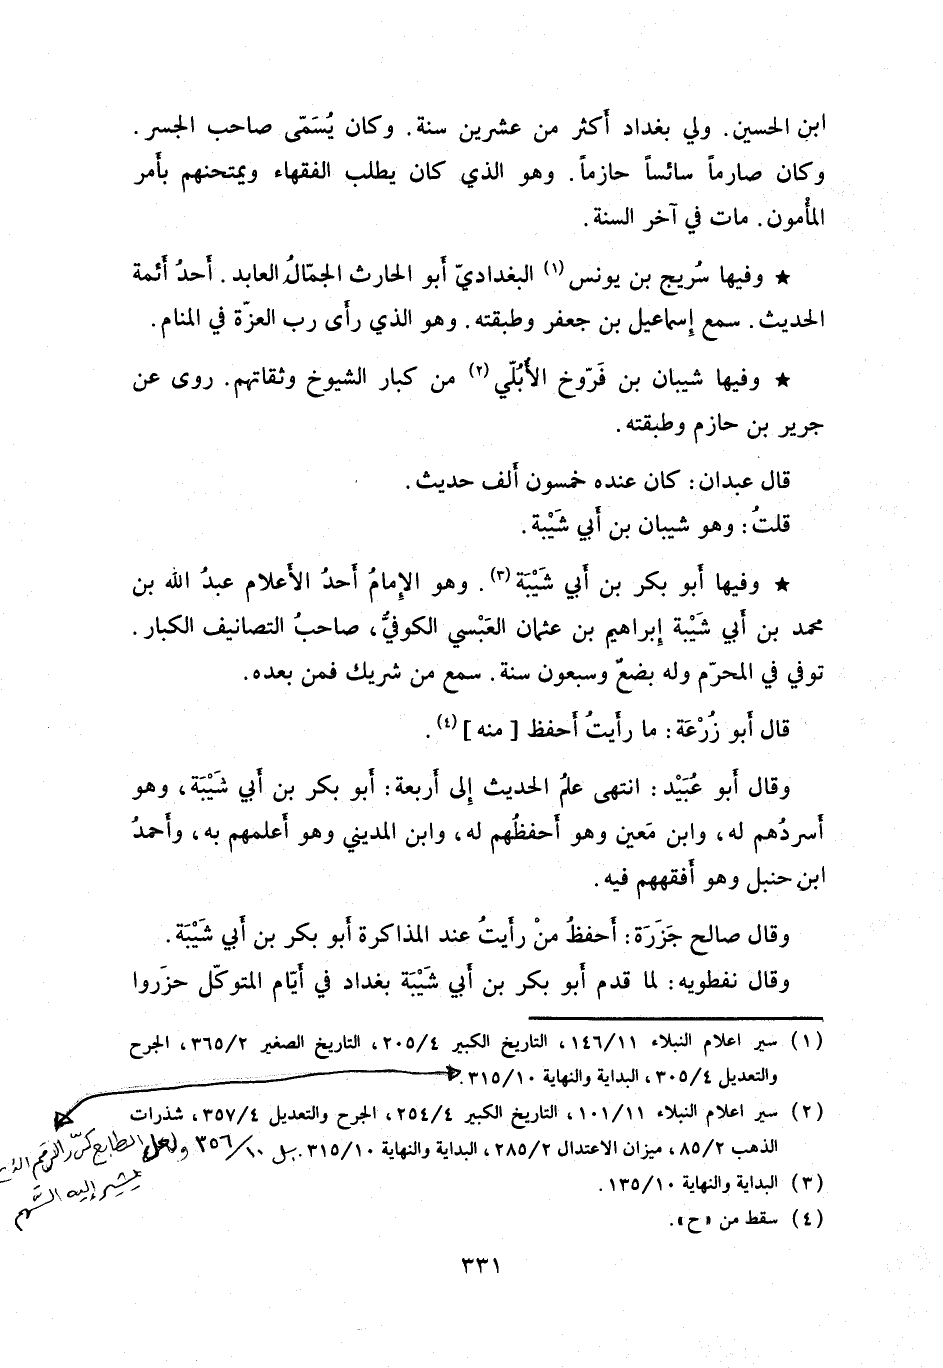 ابن الحسين. ولي بغداد أكثر من عشرين سنة. وكان يُسَمّى صاحب الجسر.
وكان صارماً سائساً حازماً. وهو الذي كان يطلب الفقهاء ويمتحنهم بأَمر
المأْمون. مات في آخر السنة.
★ وفيها سُريج بن يونس (١) البغداديّ أَبو الحارث الجمّالُ العابد. أَحدُ أَئمة
الحديث. سمع إِسماعيل بن جعفر وطبقته. وهو الذي رأَى رب العزّة في المنام.
★ وفيها شيبان بن فَرّوخ الأَبُلّي (٢) من كبار الشيوخ وثقاتهم. روى عن
جرير بن حازم وطبقته.
قال عبدان: كان عنده خمسون أَلف حديث.
قلتُ: وهو شيبان بن أَبي شَيْبة.
★ وفيها أَبو بكر بن أَبي شَيْبَة (٣). وهو الإِمامُ أَحدُ الأَعلام عبدُ الله بن
محمد بن أَبي شَيْبة إِبراهيم بن عثمان العَبْسي الكوفيُّ، صاحبُ التصانيف الكبار.
توفي في المحرّم وله بضعٌ وسبعون سنة. سمع من شريك فمن بعده.
قال أَبو زُرْعَة: ما رأَيتُ أَحفظ [ منه ] (٤).
وقال أَبو عُبَيْد: انتهى علمُ الحديث إِلى أَربعة: أَبو بكر بن أَبي شَيْبَة، وهو
أَسردُهم له، وابن مَعين وهو أَحفظُهم له، وابن المديني وهو أَعلمهم به، وأَحمدُ
ابن حنبل وهو أَفقههم فيه.
وقال صالح جَزَرَة: أَحفظُ منْ رأَيتُ عند المذاكرة أَبو بكر بن أَبي شَيْبَة.
وقال نفطويه: لما قدم أَبو بكر بن أَبي شَيْبَة بغداد في أَيّام المتوكّل حزَروا
(١) سير اعلام النبلاء ١٤٦/١١، التاريخ الكبير ٢٠٥/٤، التاريخ الصغير ٣٦٥/٢، الجرح
والتعديل ٣٠٥/٤، البداية والنهاية ٣١٥/١٠.
(٢) سير اعلام النبلاء ١٠١/١١، التاريخ الكبير ٢٥٤/٤، الجرح والتعديل ٣٥٧/٤، شذرات
الذهب ٨٥/٢، ميزان الاعتدال ٢٨٥/٢، البداية والنهاية ٣١٥/١٠. بل ٣٥٦/١٠ ولعل الطابع كرّر الرقم
يشير إليه السَّهم
(٣) البداية والنهاية ١٣٥/١٠.
(٤) سقط من «ح».
٣٣١